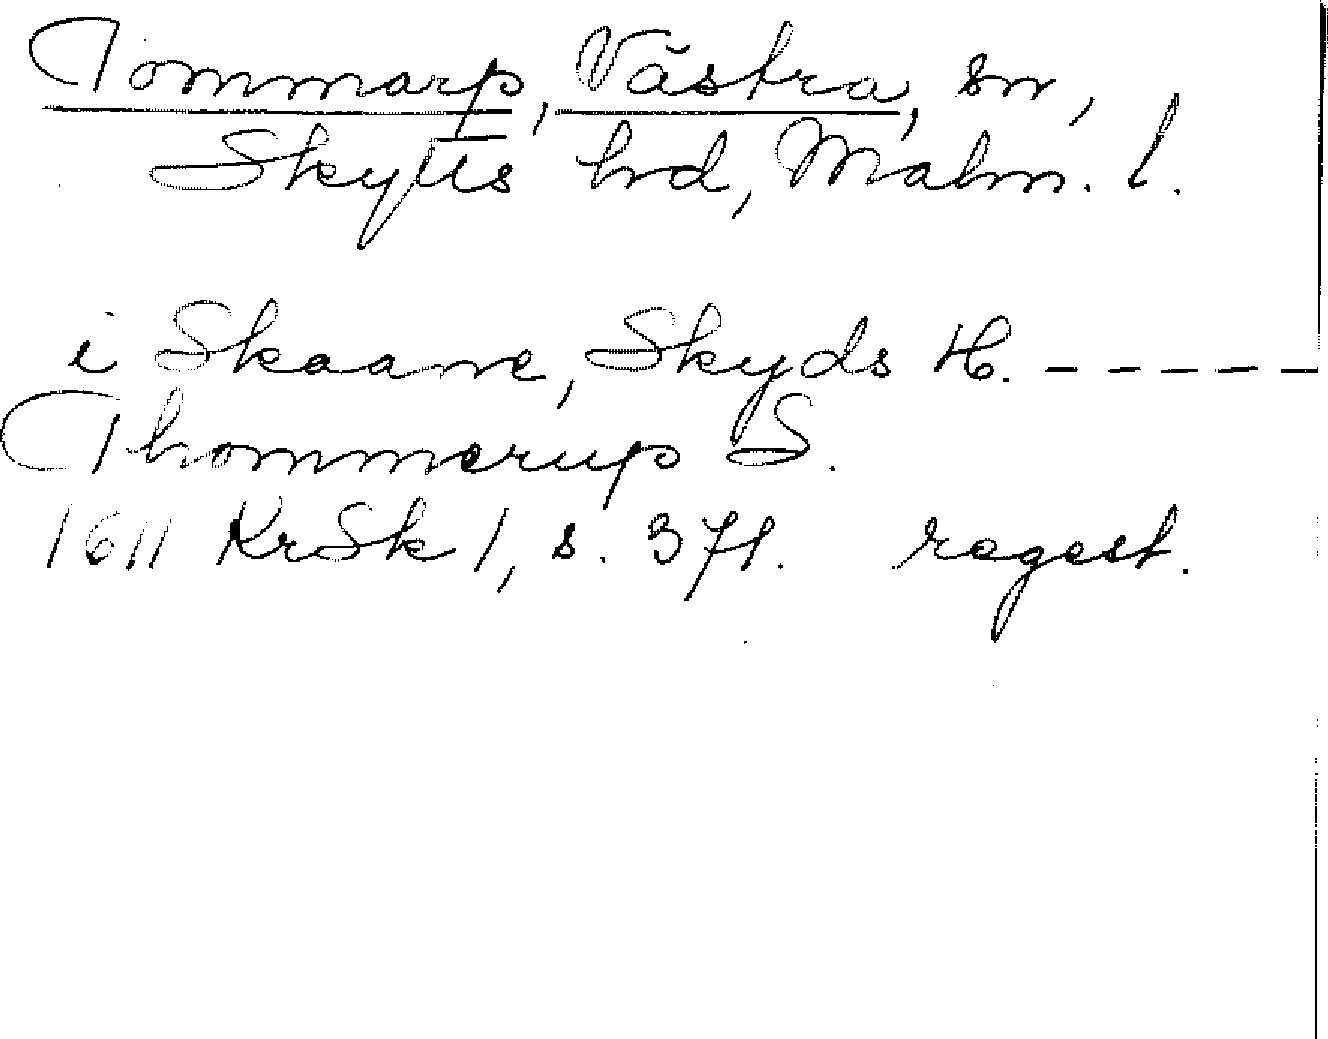 Tommarp, Västra, sn,
Skytts hd, Malm. l.
i Skaane, Skyds H. - - - - -
Thommerup S.
1611 KrSk 1, s. 371. regest.